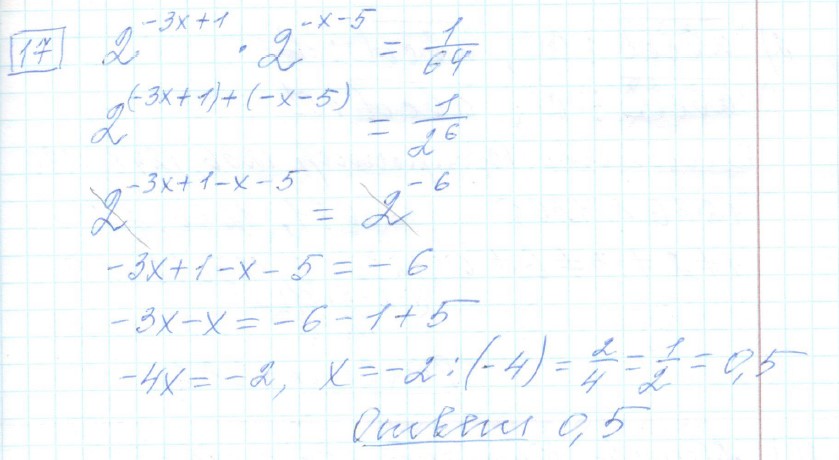 17 2^(-3x+1) · 2^(-x-5) = 1/64
2^((-3x+1)+(-x-5)) = 1/2^6
2^(-3x+1-x-5) = 2^(-6)
-3x+1-x-5=-6
-3x-x=-6-1+5
-4x=-2, x=-2:(-4)=2/4=1/2=0,5
Ответ 0,5